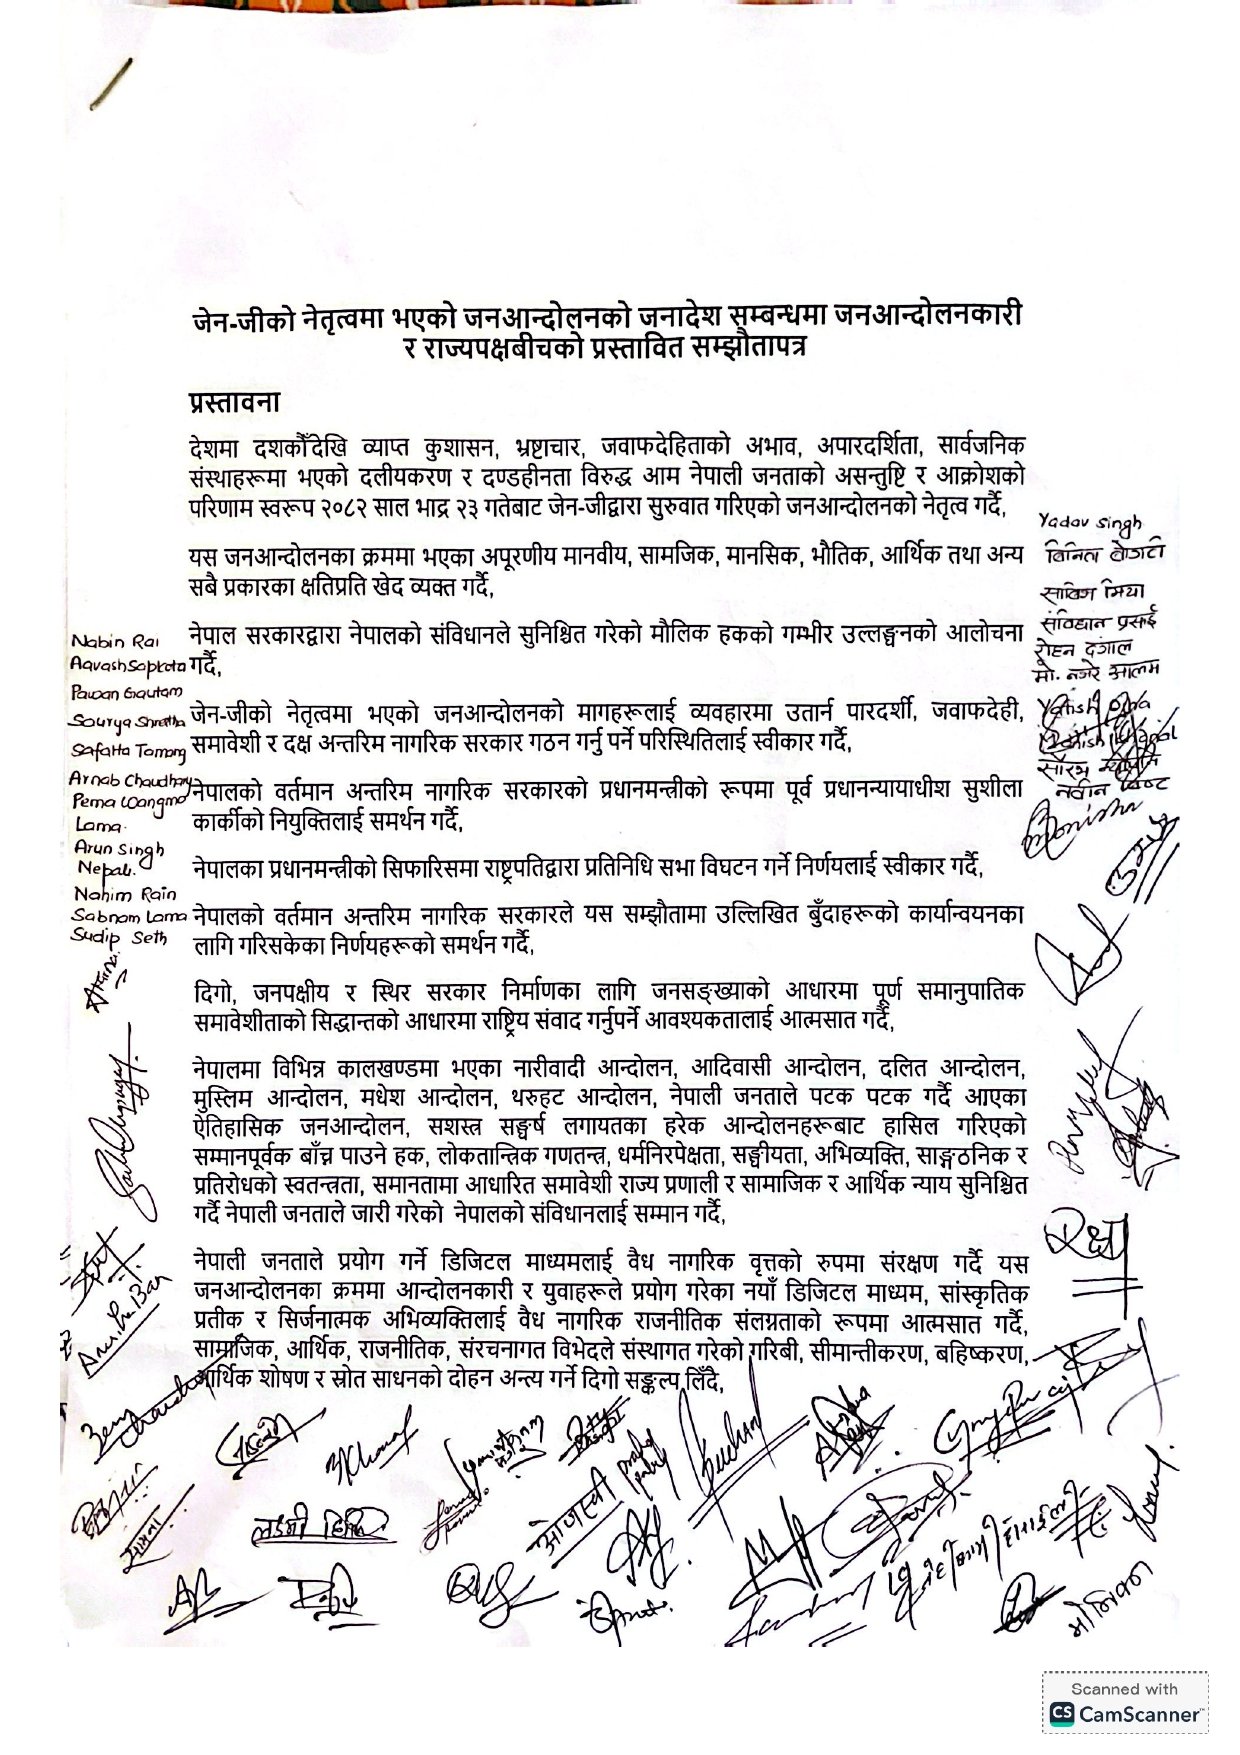 जेन-जीको नेतृत्वमा भएको जनआन्दोलनको जनादेश सम्बन्धमा जनआन्दोलनकारी
र राज्यपक्षबीचको प्रस्तावित सम्झौतापत्र
प्रस्तावना
देशमा दशकौँदेखि व्याप्त कुशासन, भ्रष्टाचार, जवाफदेहिताको अभाव, अपारदर्शिता, सार्वजनिक
संस्थाहरूमा भएको दलीयकरण र दण्डहीनता विरुद्ध आम नेपाली जनताको असन्तुष्टि र आक्रोशको
परिणाम स्वरूप २०८२ साल भाद्र २३ गतेबाट जेन-जीद्वारा सुरुवात गरिएको जनआन्दोलनको नेतृत्व गर्दै,
यस जनआन्दोलनका क्रममा भएका अपूरणीय मानवीय, सामजिक, मानसिक, भौतिक, आर्थिक तथा अन्य
सबै प्रकारका क्षतिप्रति खेद व्यक्त गर्दै,
नेपाल सरकारद्वारा नेपालको संविधानले सुनिश्चित गरेको मौलिक हकको गम्भीर उल्लङ्घनको आलोचना
गर्दै,
जेन-जीको नेतृत्वमा भएको जनआन्दोलनको मागहरूलाई व्यवहारमा उतार्न पारदर्शी, जवाफदेही,
समावेशी र दक्ष अन्तरिम नागरिक सरकार गठन गर्नु पर्ने परिस्थितिलाई स्वीकार गर्दै,
नेपालको वर्तमान अन्तरिम नागरिक सरकारको प्रधानमन्त्रीको रूपमा पूर्व प्रधानन्यायाधीश सुशीला
कार्कीको नियुक्तिलाई समर्थन गर्दै,
नेपालका प्रधानमन्त्रीको सिफारिसमा राष्ट्रपतिद्वारा प्रतिनिधि सभा विघटन गर्ने निर्णयलाई स्वीकार गर्दै,
नेपालको वर्तमान अन्तरिम नागरिक सरकारले यस सम्झौतामा उल्लिखित बुँदाहरूको कार्यान्वयनका
लागि गरिसकेका निर्णयहरूको समर्थन गर्दै,
दिगो, जनपक्षीय र स्थिर सरकार निर्माणका लागि जनसङ्ख्याको आधारमा पूर्ण समानुपातिक
समावेशीताको सिद्धान्तको आधारमा राष्ट्रिय संवाद गर्नुपर्ने आवश्यकतालाई आत्मसात गर्दै,
नेपालमा विभिन्न कालखण्डमा भएका नारीवादी आन्दोलन, आदिवासी आन्दोलन, दलित आन्दोलन,
मुस्लिम आन्दोलन, मधेश आन्दोलन, थरुहट आन्दोलन, नेपाली जनताले पटक पटक गर्दै आएका
ऐतिहासिक जनआन्दोलन, सशस्त्र सङ्घर्ष लगायतका हरेक आन्दोलनहरूबाट हासिल गरिएको
सम्मानपूर्वक बाँच्न पाउने हक, लोकतान्त्रिक गणतन्त्र, धर्मनिरपेक्षता, सङ्घीयता, अभिव्यक्ति, साङ्गठनिक र
प्रतिरोधको स्वतन्त्रता, समानतामा आधारित समावेशी राज्य प्रणाली र सामाजिक र आर्थिक न्याय सुनिश्चित
गर्दै नेपाली जनताले जारी गरेको नेपालको संविधानलाई सम्मान गर्दै,
नेपाली जनताले प्रयोग गर्ने डिजिटल माध्यमलाई वैध नागरिक वृत्तको रुपमा संरक्षण गर्दै यस
जनआन्दोलनका क्रममा आन्दोलनकारी र युवाहरूले प्रयोग गरेका नयाँ डिजिटल माध्यम, सांस्कृतिक
प्रतीक र सिर्जनात्मक अभिव्यक्तिलाई वैध नागरिक राजनीतिक संलग्नताको रूपमा आत्मसात गर्दै,
सामाजिक, आर्थिक, राजनीतिक, संरचनागत विभेदले संस्थागत गरेको गरिबी, सीमान्तीकरण, बहिष्करण,
आर्थिक शोषण र स्रोत साधनको दोहन अन्त्य गर्ने दिगो सङ्कल्प लिँदै,
Nabin Rai
Aavash Sapkota
Pawan Gautam
Sourya Shretha
Safalta Tamang
Arnab Chaudhary
Pema Wangmo
Lama
Arun Singh
Nepali.
Nahim Rain
Sabnam Lama
Sudip Seth
Yadav Singh
साविन मिया
संविधान प्रसाई
रोहन दंगाल
मो. नजरे आलम
रक्षा
लक्ष्मी
ओजस्वी
Scanned with
CS CamScanner